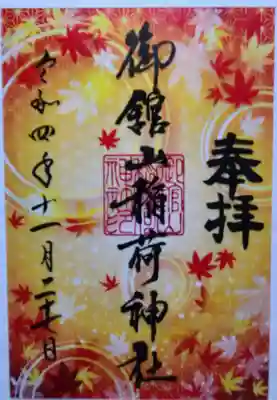 奉拝
御館山稲荷神社
令和四年十一月二十七日